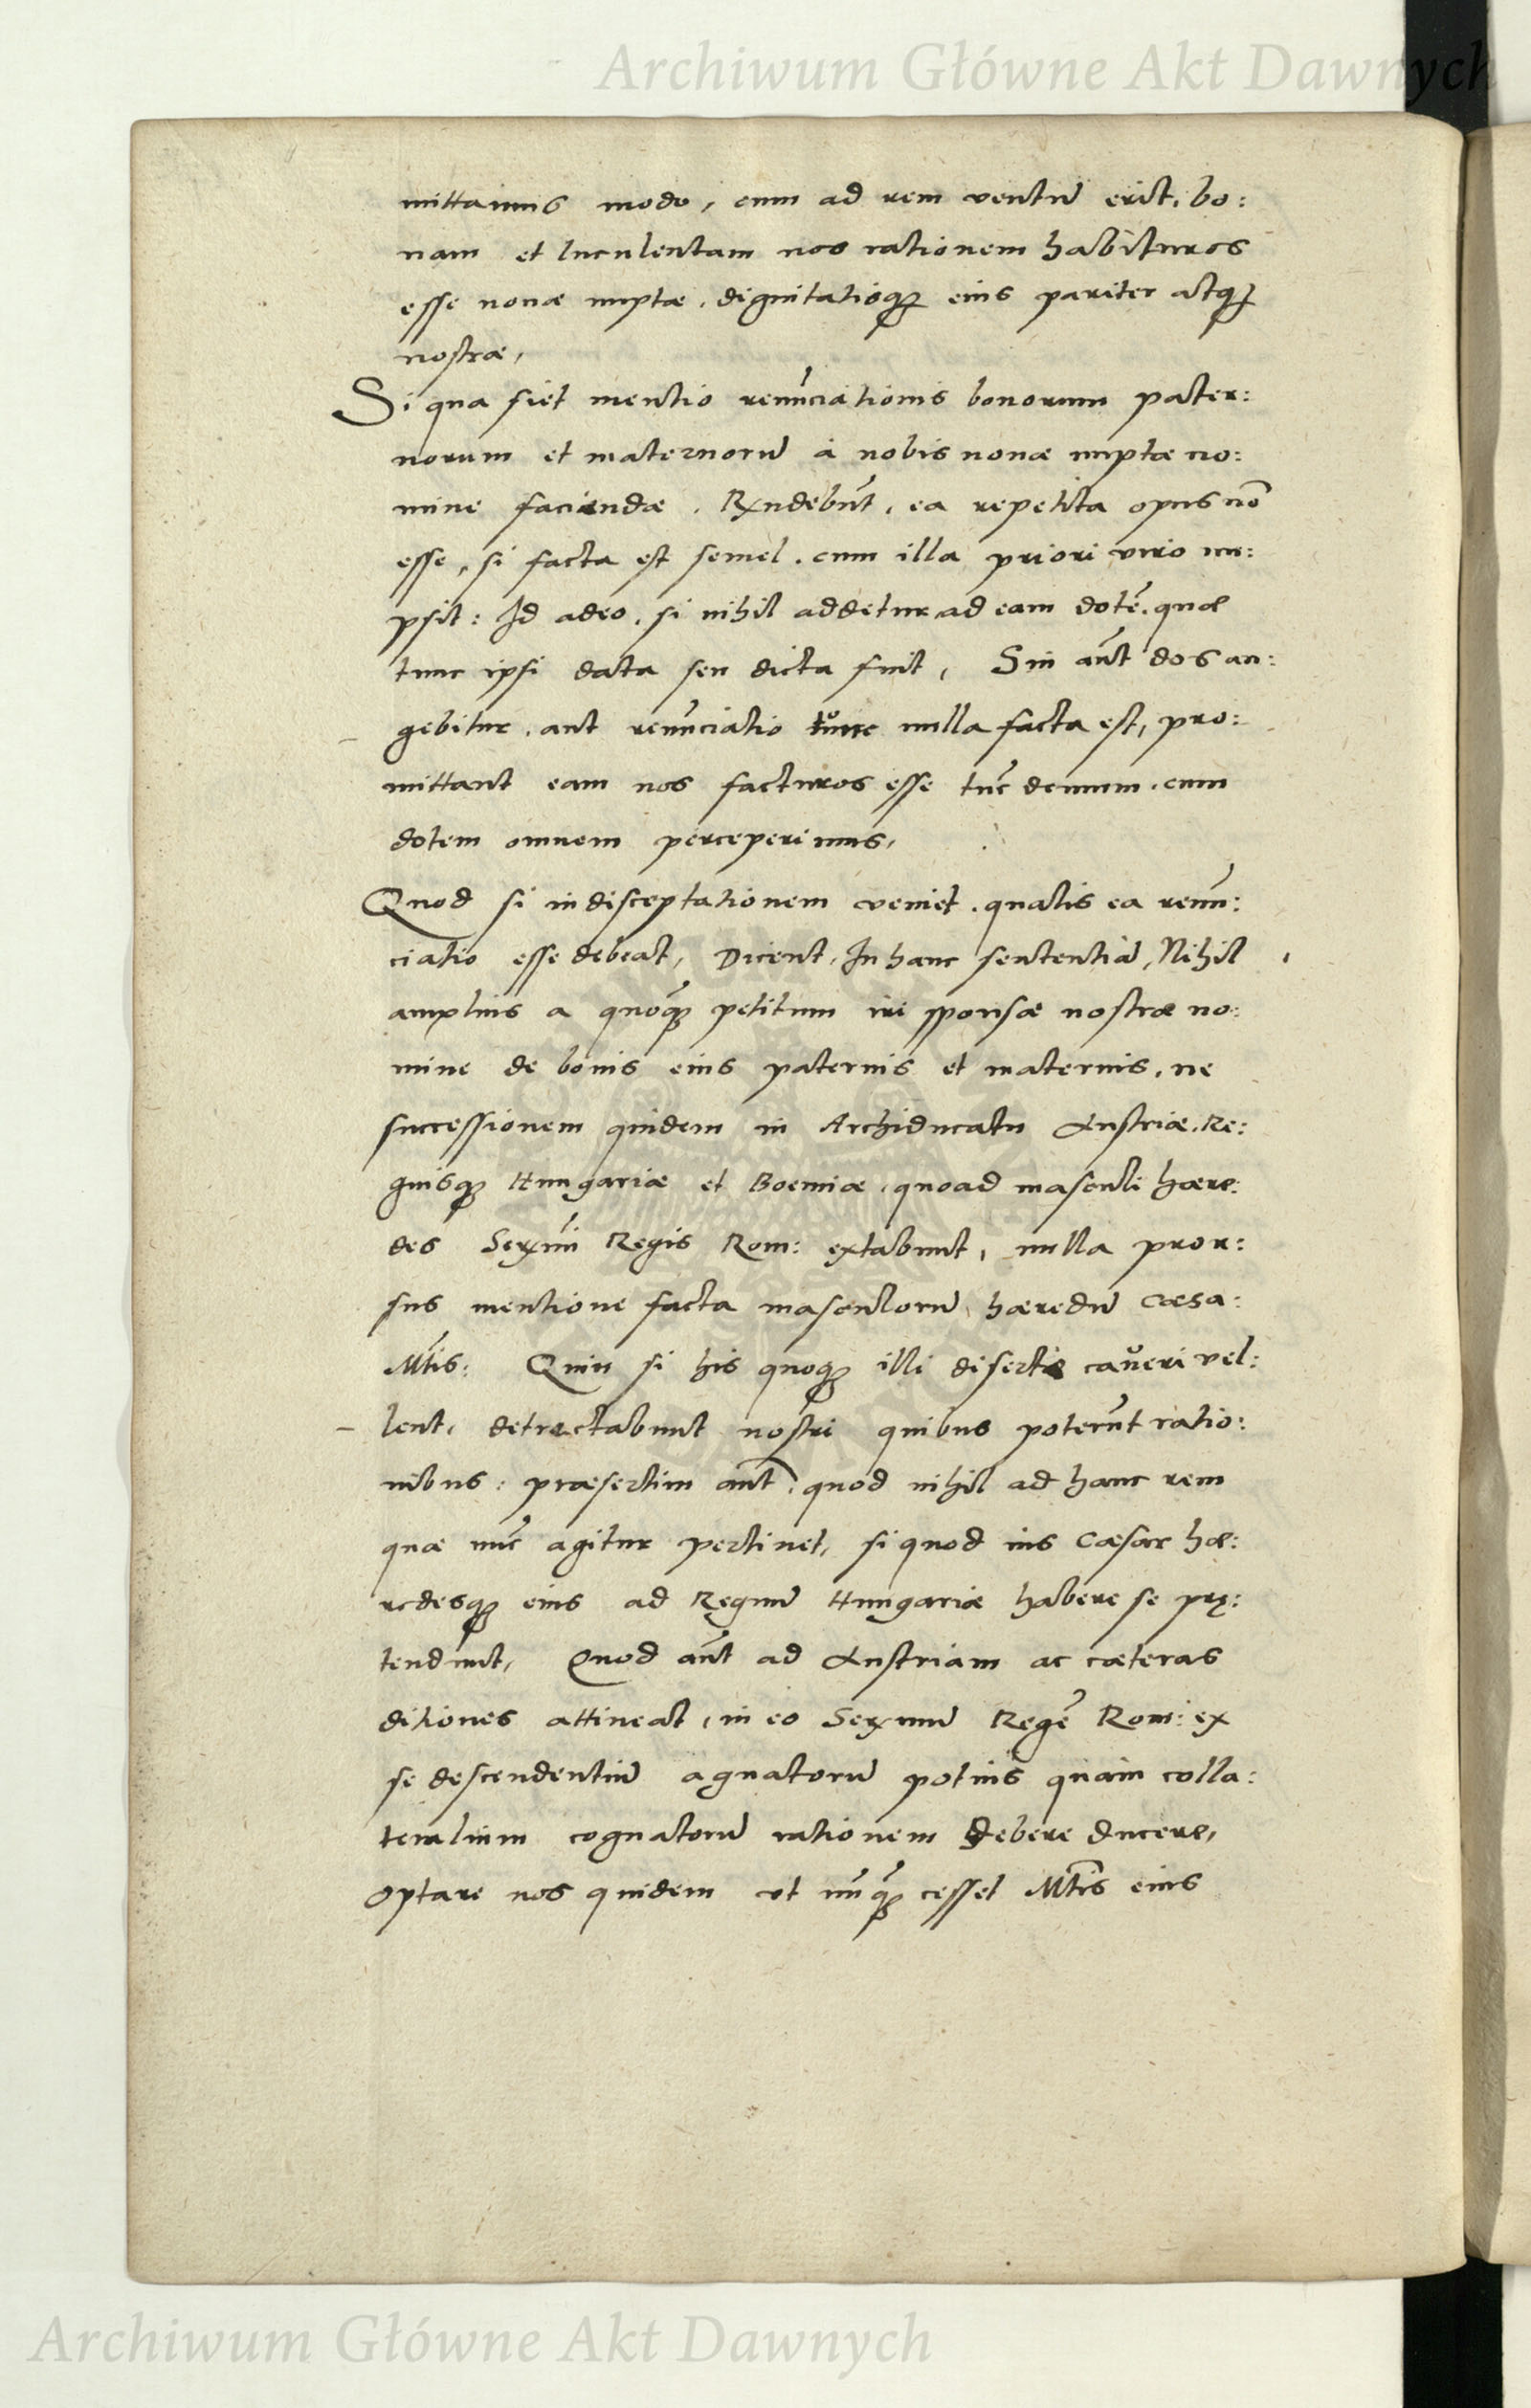 Archiwum Główne Akt Dawnych
mittamus modo, cum ad rem ventū erit, bo:
nam et luculentam nos rationem habituros
esse novæ nuptæ, dignitatisq̃ eius pariter atq̃
nostræ,
Si qua fiet mentio renūciationis bonorum pater:
norum et maternorū à nobis novæ nuptæ no:
mine faciendæ. Rxndebūt, ea repetita opus nō
esse, si facta est semel, cum illa priori viro nu:
psit: Id adeo, si nihil addetur ad eam dotē, quæ
tunc ipsi data seu dicta fuit, Sin aūt dos au:
gebitur, aut renūciatio nulla facta est, pro:
mittant eam nos facturos esse tūc demum, cum
dotem omnem perceperimus,
Quod si in disceptationem veniet, qualis ea renū:
ciatio esse debeat, Dicent, In hanc sententiā, Nihil
amplius a quoq̃ petitum iri sponsæ nostræ no:
mine de bonis eius paternis et maternis, ne
successionem quidem in Archiducatu Austriæ, Re:
gnisq̃ Hungariæ et Boemiæ, quoad masculi hære:
des Serx̃mi Regis Rom: extabunt, nulla pror:
sus mentione facta masculorū hæredū Cæsa:
Mtis: Quin si his quoq̃ illi diserte caveri vel:
lent, detrectabunt nostri quibus poterūt ratio:
nibus: præsertim aūt, quod nihil ad hanc rem
quæ nūc agitur pertinet, si quod ius Cæsar hæ:
redesq̃ eius ad Regnū Hungariæ habere se prę:
tendunt, Quod aūt ad Austriam ac cæteras
ditiones attineat, in eo Serx̃mū Regē Rom: ex
se descendentiū agnatorū potius quàm colla:
teralium cognatorū rationem debere ducere,
Optare nos quidem ut nūq̃ cesset Mtis eius
Archiwum Główne Akt Dawnych